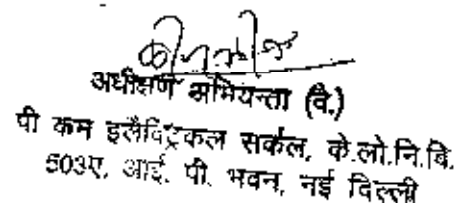 अधीक्षण अभियन्ता (वै.)
पी कम इलैक्ट्रिकल सर्कल, के.लो.नि.वि.
503ए, आई. पी. भवन, नई दिल्ली